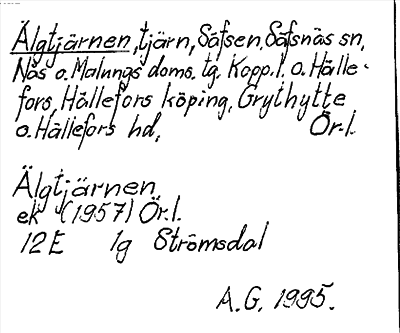 Älgtjärnen, tjärn, Säfsen, Säfsnäs sn,
Nås o. Malungs doms. tg. Kopp. l. o. Hälle-
fors, Hällefors köping, Grythytte
o. Hällefors hd, Ör. l.
Älgtjärnen
ek (1957) Ör. l.
12E 1g Strömsdal
A. G. 1995.